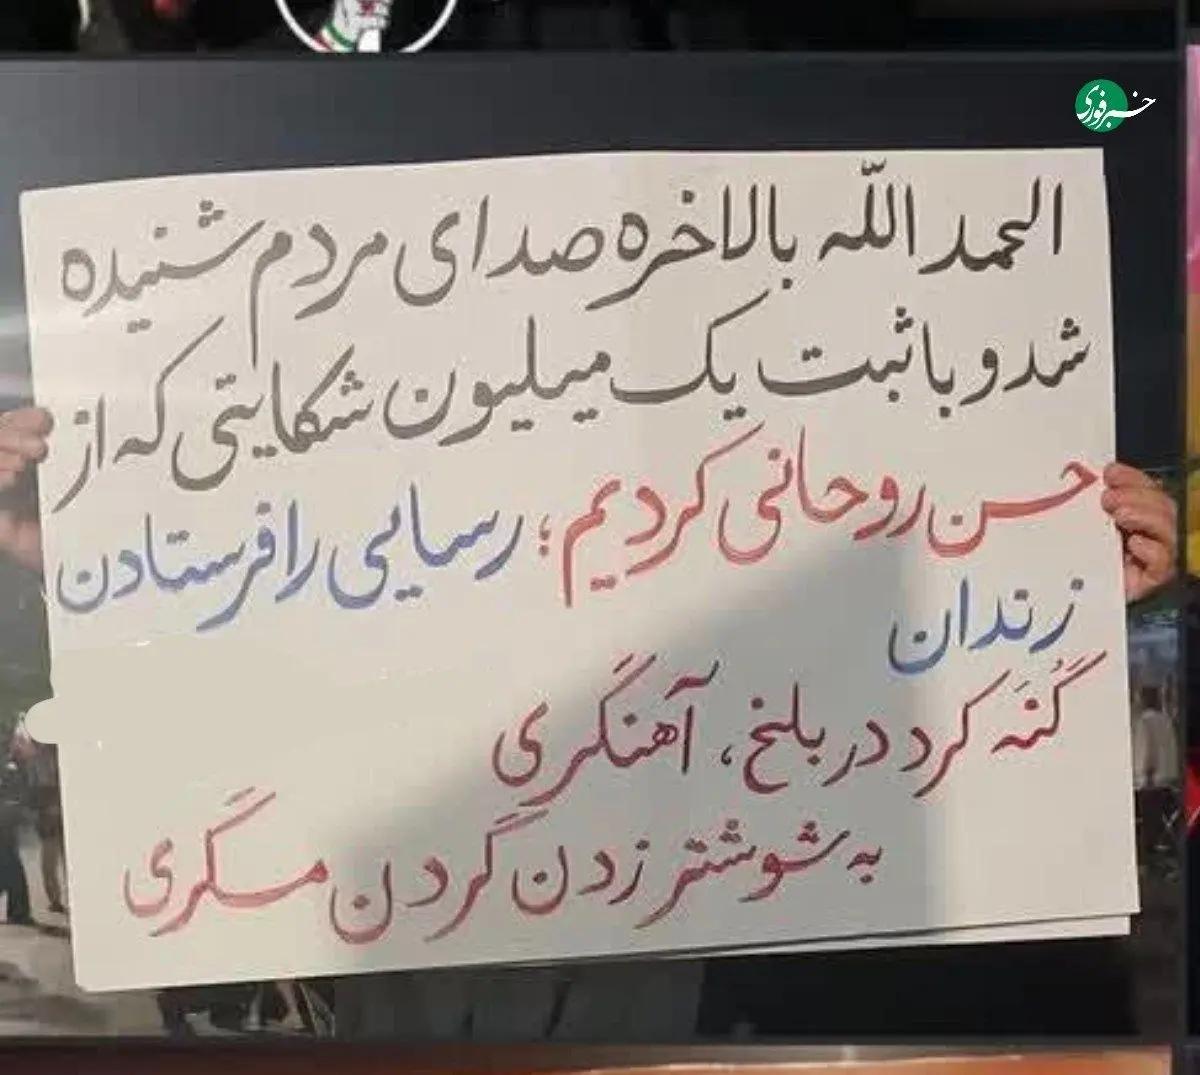 خبرفوری
الحمد اللّه بالاخره صدای مردم شنیده
شد و با ثبت یک میلیون شکایتی که از
حسن روحانی کردیم؛ رسایی را فرستادن
زندان
گُنَه کرد در بلخ، آهنگری
به شوشتر زدن گردن مسگری